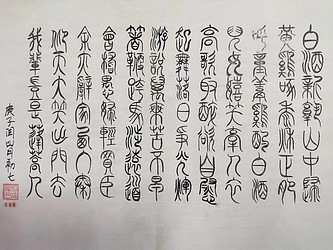 白酒新熟山中歸
黃雞啄黍秋正肥
呼童烹雞酌白酒
兒女嬉笑牽人衣
高歌取醉欲自慰
起舞落日爭光輝
游說萬乘苦不早
著鞭跨馬涉遠道
會稽愚婦輕買臣
余亦辭家西入秦
仰天大笑出門去
我輩豈是蓬蒿人
庚子閏四月初七